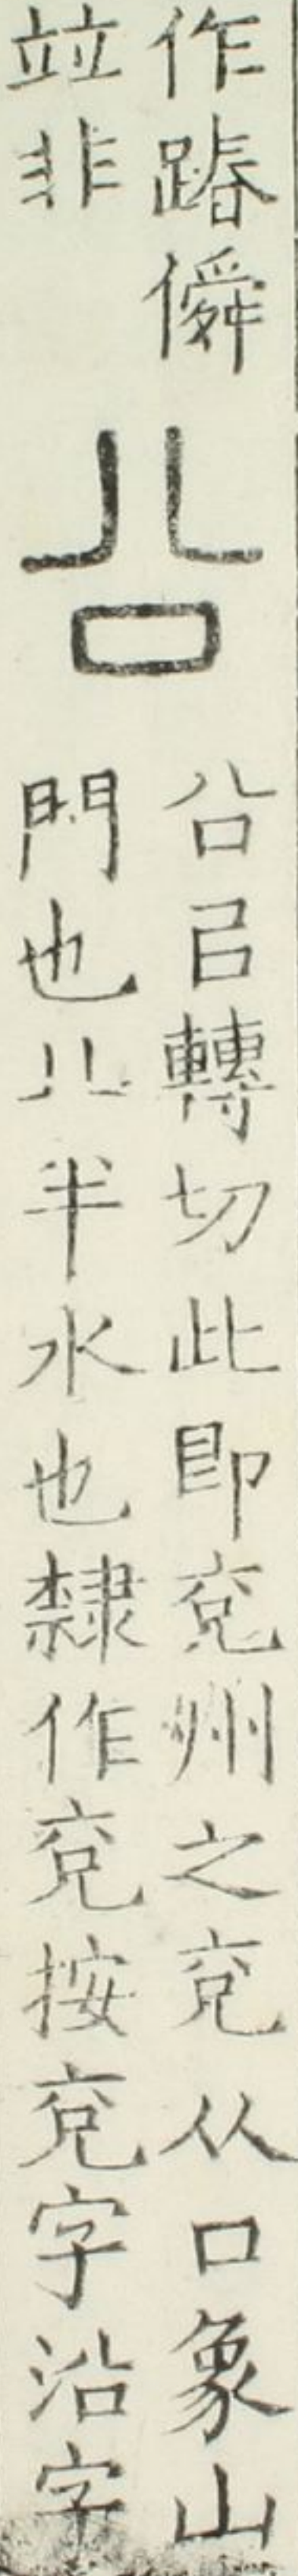 作踳僢
並非
㕣
㕣㠯轉切此即兗州之兗从口象山
門也八半水也隸作兗按兗字沿字